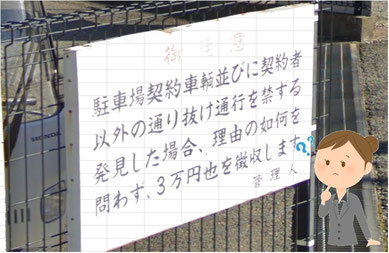 御注意
駐車場契約車輌並びに契約者
以外の通り抜け通行を禁ずる
発見した場合、理由の如何を
問わず、3万円也を徴収します
管理人
HONDA
??